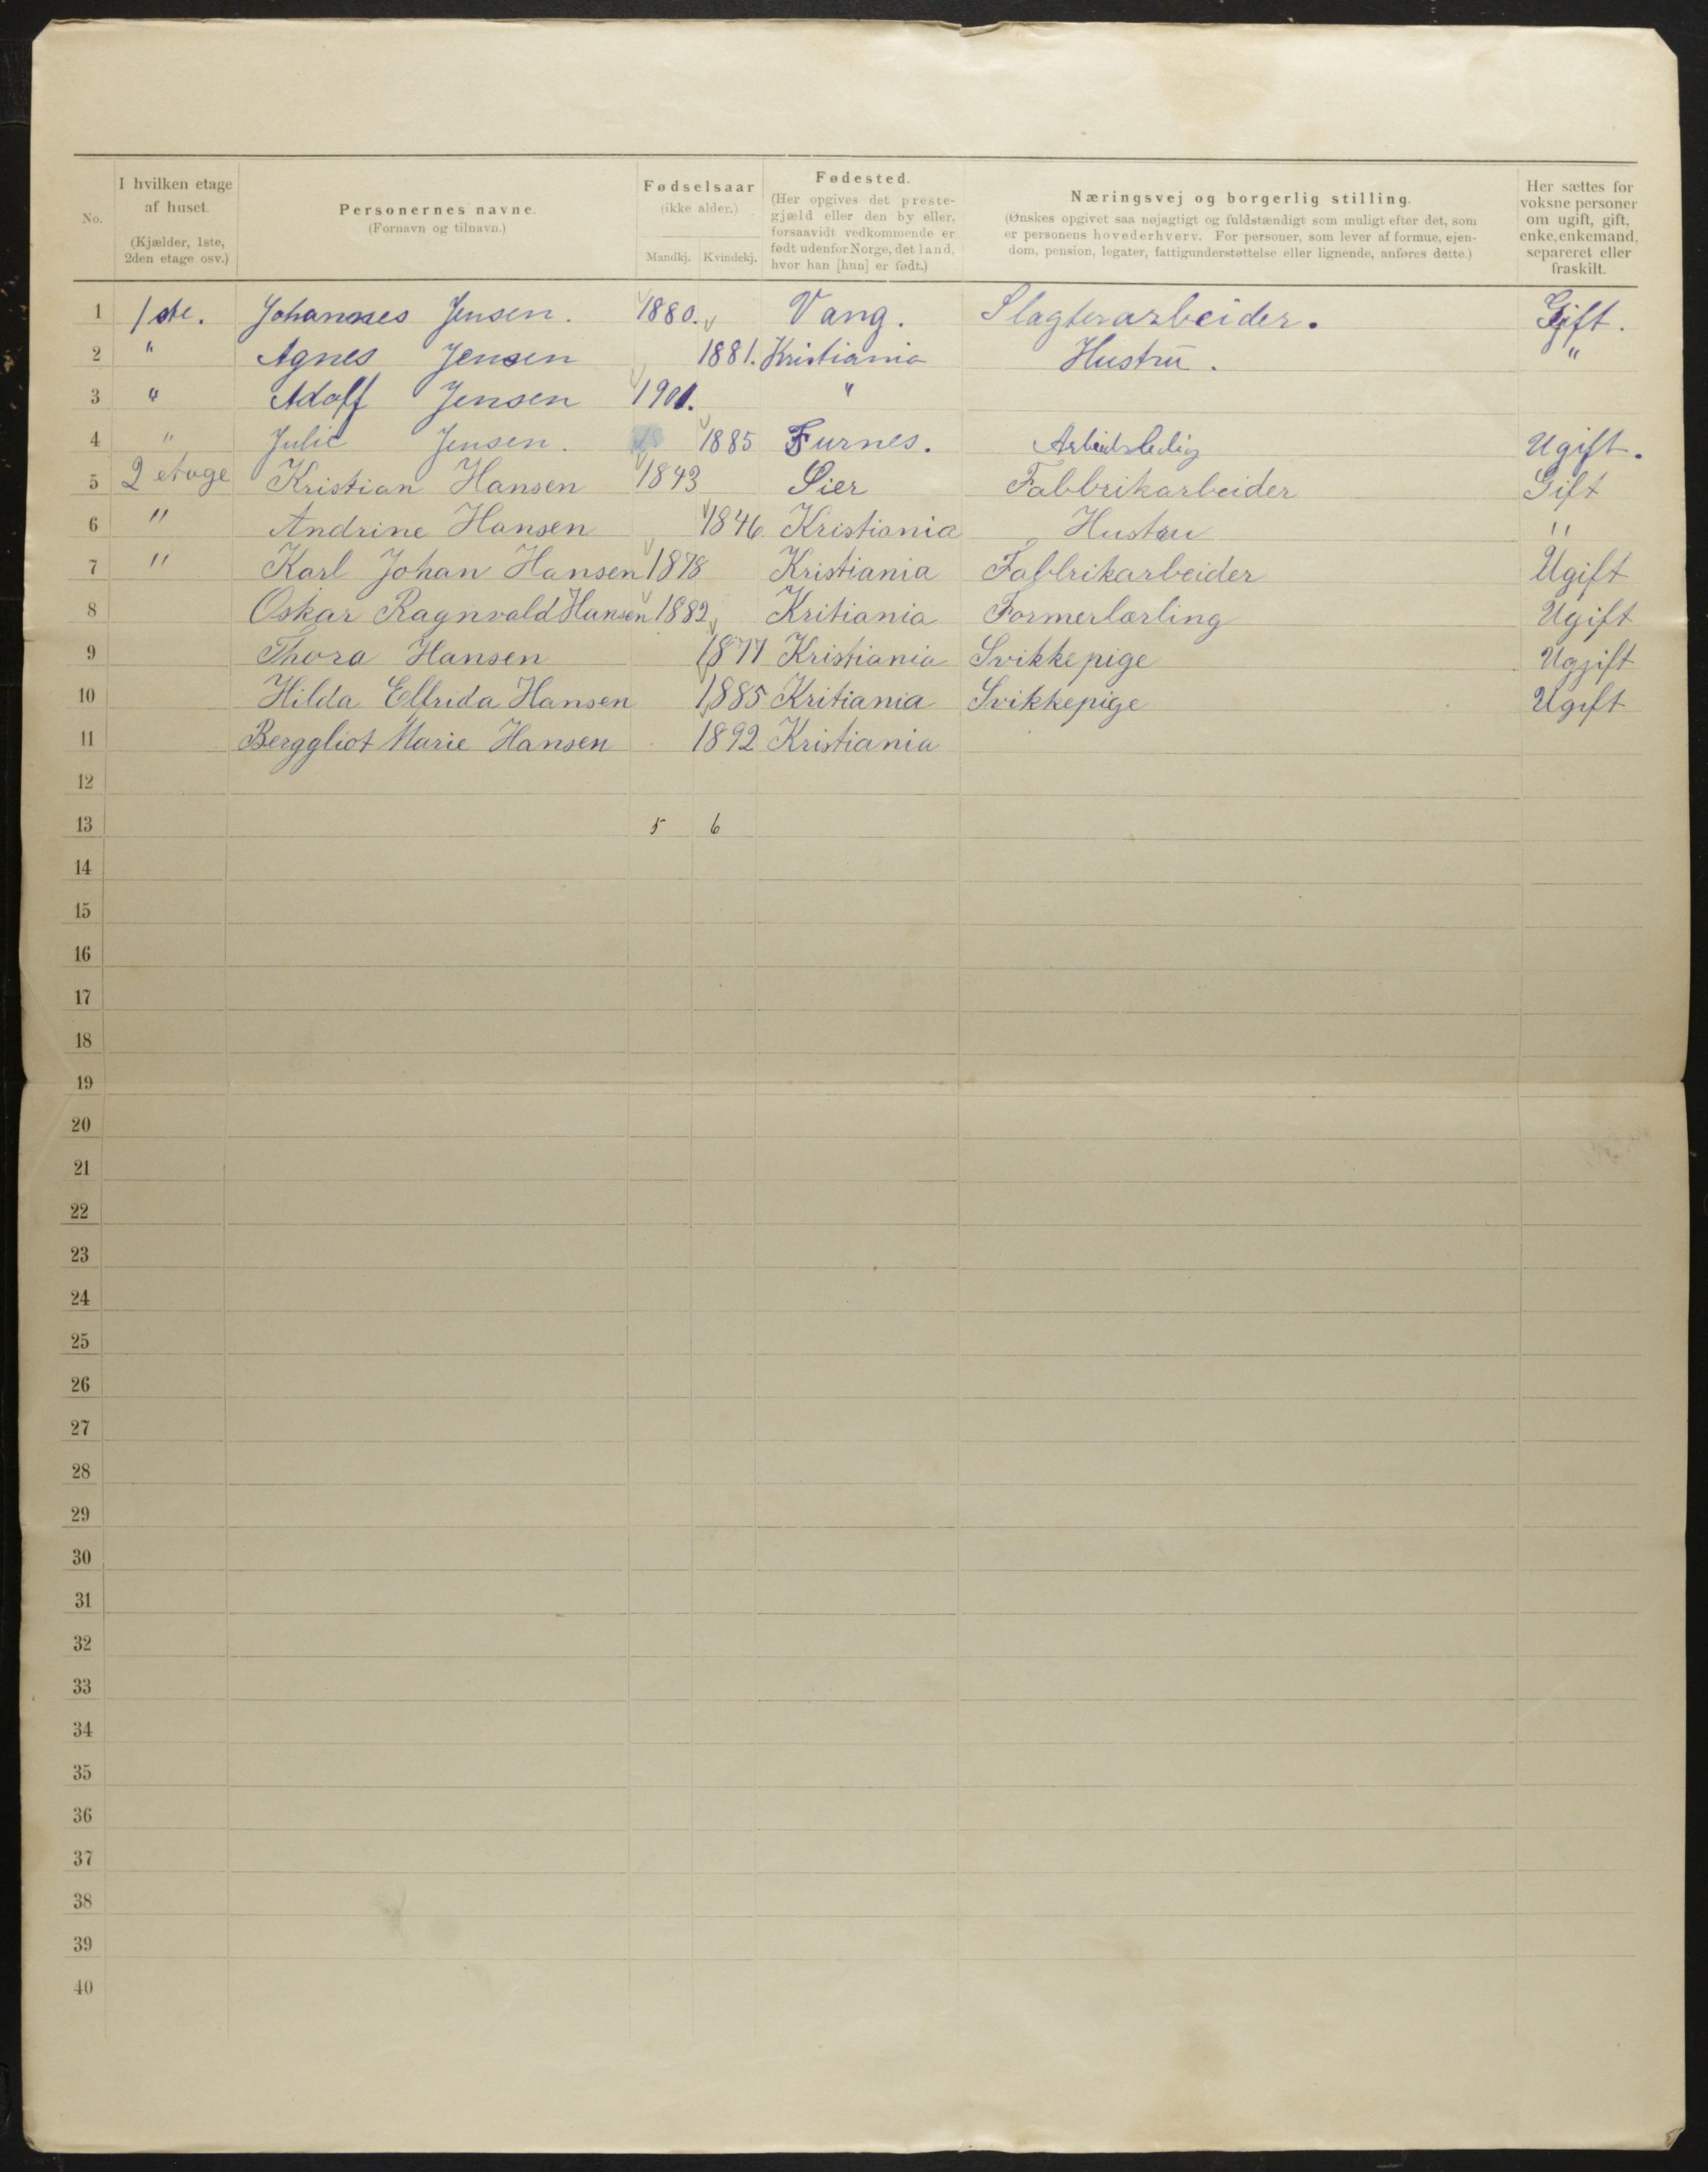 No. I hvilken etage af huset. (Kjælder, 1ste, 2den etage osv.) Personernes navne. (Fornavn og tilnavn.) Fødselsaar (ikke alder.) Mandkj. Kvindekj. Fødested. (Her opgives det prestegjæld eller den by eller, forsaavidt vedkommende er født udenfor Norge, det land, hvor han [hun] er født.) Næringsvej og borgerlig stilling. (Ønskes opgivet saa nøjagtigt og fuldstændigt som muligt efter det, som er personens hovederhverv. For personer, som lever af formue, ejendom, pension, legater, fattigunderstøttelse eller lignende, anføres dette.) Her sættes for voksne personer om ugift, gift, enke, enkemand, separeret eller fraskilt.
1 1ste. Johannes Jensen. 1880. Vang. Slagterarbeider. Gift.
2 " Agnes Jensen 1881. Kristiania Hustru. "
3 " Adolf Jensen 1901. "
4 " Julie Jensen. 1885 Furnes. Arbeidsledig Ugift.
5 2 etage Kristian Hansen 1843 Lier Fabbrikarbeider Gift
6 " Andrine Hansen 1846 Kristiania Hustru "
7 " Karl Johan Hansen 1878 Kristiania Fabbrikarbeider Ugift
8 Oskar Ragnvald Hansen 1882 Kritiania Formerlærling Ugift
9 Thora Hansen 1877 Kristiania Svikkepige Uggift
10 Hilda Elfrida Hansen 1885 Kritiania Svikkepige Ugift
11 Berggliot Marie Hansen 1892 Kristiania
12
13 5 6
14
15
16
17
18
19
20
21
22
23
24
25
26
27
28
29
30
31
32
33
34
35
36
37
38
39
40